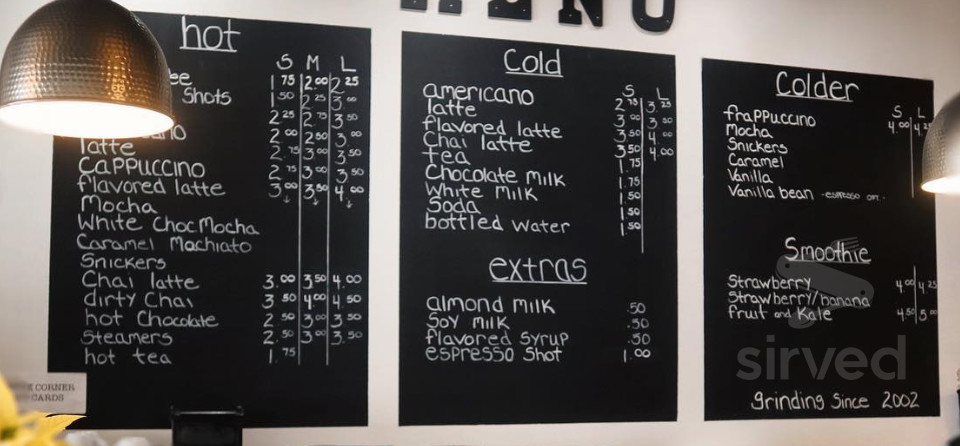 MENU
hot
S M L
ee 1.75 2.00 2.25
Shots 1.50 2.25 3.00
2.25 2.75 3.50
ano 2.00 2.50 3.00
latte 2.75 3.00 3.50
Cappuccino 2.75 3.00 3.50
flavored latte 3.00 3.50 4.00
Mocha ↓ ↓ ↓
White Choc Mocha
Caramel Machiato
Snickers
Chai latte 3.00 3.50 4.00
dirty Chai 3.50 4.00 4.50
hot Chocolate 2.50 3.00 3.50
Steamers 2.50 3.00 3.50
hot tea 1.75
CORNER
CARDS
Cold
S L
americano 2.75 3.25
latte 3.00 3.50
flavored latte 3.00 4.00
Chai latte 3.50 4.00
tea 1.75
Chocolate Milk 1.75
White Milk 1.50
Soda 1.50
bottled water 1.50
extras
almond milk .50
Soy milk .50
flavored Syrup .50
espresso Shot 1.00
Colder
S L
frappuccino 4.00 4.2
Mocha
Snickers
Caramel
Vanilla
Vanilla bean -espresso opt.-
Smoothie
Strawberry 4.00 4.25
Strawberry/banana
fruit and Kale 4.50 5.00
sirved
Grinding Since 2002